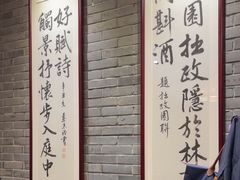 園拙政隱於林
斟酒
題拙政園聯
觸景抒懷步入庭中
好賦詩